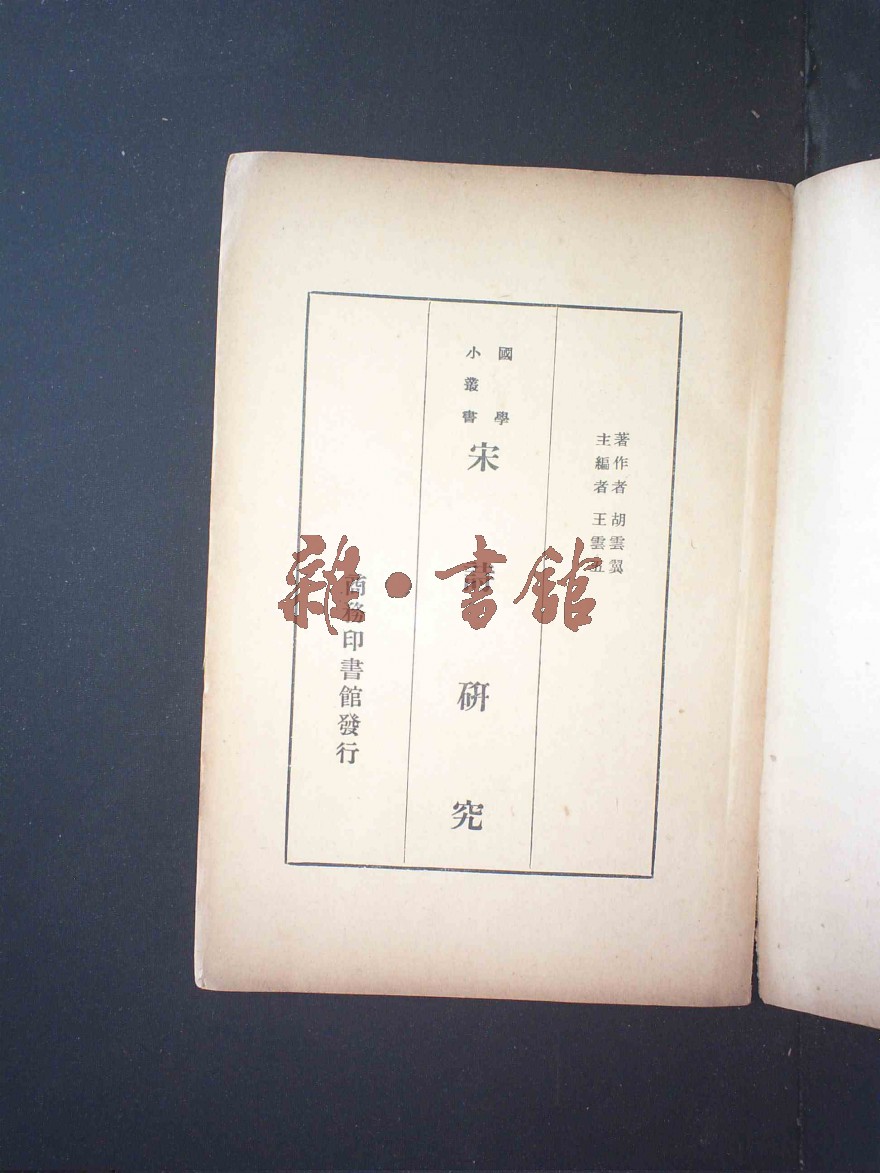 著作者 胡雲翼
主編者 王雲五
國學
小叢書
宋詩研究
商務印書館發行
雜·書館